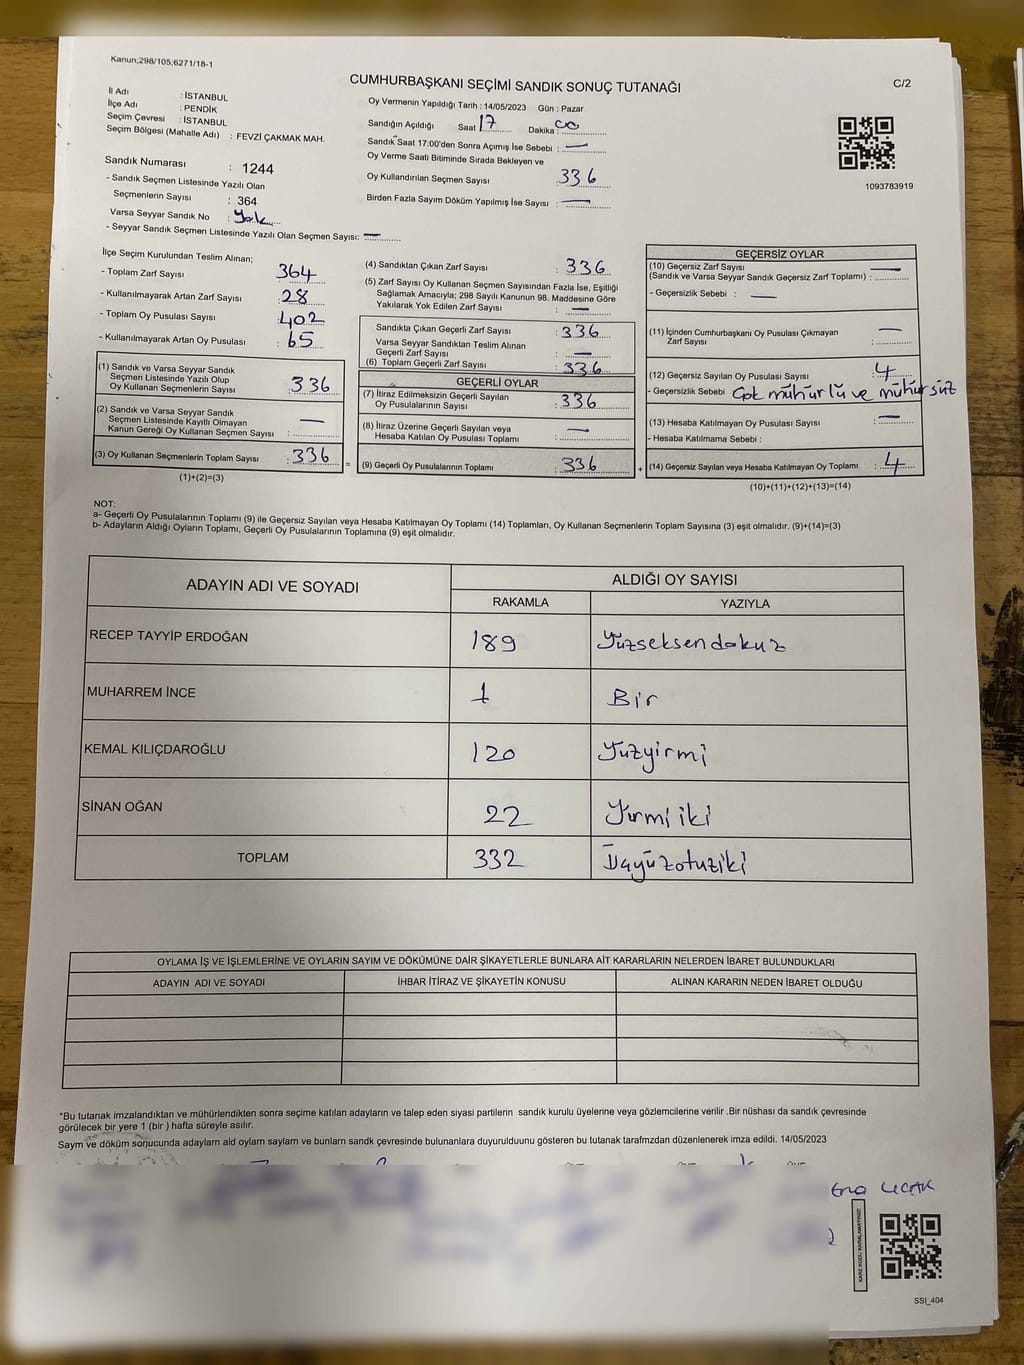 Kanun;298/105;6271/18-1
CUMHURBAŞKANI SEÇİMİ SANDIK SONUÇ TUTANAĞI
C/2
İl Adı : İSTANBUL
İlçe Adı : PENDİK
Seçim Çevresi : İSTANBUL
Seçim Bölgesi (Mahalle Adı) : FEVZİ ÇAKMAK MAH.
Sandık Numarası : 1244
- Sandık Seçmen Listesinde Yazılı Olan
Seçmenlerin Sayısı : 364
Varsa Seyyar Sandık No : Yok
- Seyyar Sandık Seçmen Listesinde Yazılı Olan Seçmen Sayısı: —
Oy Vermenin Yapıldığı Tarih : 14/05/2023 Gün : Pazar
Sandığın Açıldığı Saat : 17 Dakika : 00
Sandık Saat 17:00'den Sonra Açımış İse Sebebi : —
Oy Verme Saati Bitiminde Sırada Bekleyen ve
Oy Kullandırılan Seçmen Sayısı 336
Birden Fazla Sayım Döküm Yapılmış İse Sayısı : —
1093783919
İlçe Seçim Kurulundan Teslim Alınan;
- Toplam Zarf Sayısı 364
- Kullanılmayarak Artan Zarf Sayısı : 28
- Toplam Oy Pusulası Sayısı : 402
- Kullanılmayarak Artan Oy Pusulası : 65
(1) Sandık ve Varsa Seyyar Sandık
Seçmen Listesinde Yazılı Olup
Oy Kullanan Seçmenlerin Sayısı : 336
(2) Sandık ve Varsa Seyyar Sandık
Seçmen Listesinde Kayıtlı Olmayan
Kanun Gereği Oy Kullanan Seçmen Sayısı : —
(3) Oy Kullanan Seçmenlerin Toplam Sayısı : 336
(1)+(2)=(3)
(4) Sandıktan Çıkan Zarf Sayısı : 336
(5) Zarf Sayısı Oy Kullanan Seçmen Sayısından Fazla İse, Eşitliği
Sağlamak Amacıyla; 298 Sayılı Kanunun 98. Maddesine Göre
Yakılarak Yok Edilen Zarf Sayısı : —
Sandıkta Çıkan Geçerli Zarf Sayısı : 336
Varsa Seyyar Sandıktan Teslim Alınan
Geçerli Zarf Sayısı : —
(6) Toplam Geçerli Zarf Sayısı : 336
GEÇERLİ OYLAR
(7) İtiraz Edilmeksizin Geçerli Sayılan
Oy Pusulalarının Sayısı : 336
(8) İtiraz Üzerine Geçerli Sayılan veya
Hesaba Katılan Oy Pusulası Toplamı : —
= (9) Geçerli Oy Pusulalarının Toplamı : 336 +
GEÇERSİZ OYLAR
(10) Geçersiz Zarf Sayısı —
(Sandık ve Varsa Seyyar Sandık Geçersiz Zarf Toplamı) :
- Geçersizlik Sebebi : —
(11) İçinden Cumhurbaşkanı Oy Pusulası Çıkmayan —
Zarf Sayısı :
(12) Geçersiz Sayılan Oy Pusulası Sayısı : 4
- Geçersizlik Sebebi Çok mühürlü ve mühürsüz
(13) Hesaba Katılmayan Oy Pusulası Sayısı : —
- Hesaba Katılmama Sebebi :
(14) Geçersiz Sayılan veya Hesaba Katılmayan Oy Toplamı : 4
(10)+(11)+(12)+(13)=(14)
NOT:
a- Geçerli Oy Pusulalarının Toplamı (9) ile Geçersiz Sayılan veya Hesaba Katılmayan Oy Toplamı (14) Toplamları, Oy Kullanan Seçmenlerin Toplam Sayısına (3) eşit olmalıdır. (9)+(14)=(3)
b- Adayların Aldığı Oyların Toplamı, Geçerli Oy Pusulalarının Toplamına (9) eşit olmalıdır.
ADAYIN ADI VE SOYADI ALDIĞI OY SAYISI
RAKAMLA YAZIYLA
RECEP TAYYİP ERDOĞAN 189 Yüzseksendokuz
MUHARREM İNCE 1 Bir
KEMAL KILIÇDAROĞLU 120 Yüzyirmi
SİNAN OĞAN 22 Yırmiiki
TOPLAM 332 Üçyüzotuziki
OYLAMA İŞ VE İŞLEMLERİNE VE OYLARIN SAYIM VE DÖKÜMÜNE DAİR ŞİKAYETLERLE BUNLARA AİT KARARLARIN NELERDEN İBARET BULUNDUKLARI
ADAYIN ADI VE SOYADI İHBAR İTİRAZ VE ŞİKAYETİN KONUSU ALINAN KARARIN NEDEN İBARET OLDUĞU
*Bu tutanak imzalandıktan ve mühürlendikten sonra seçime katılan adayların ve talep eden siyasi partilerin sandık kurulu üyelerine veya gözlemcilerine verilir .Bir nüshası da sandık çevresinde
görülecek bir yere 1 (bir ) hafta süreyle asılır.
Saym ve döküm sonucunda adaylarn ald oylarn saylarn ve bunlarn sandk çevresinde bulunanlara duyurulduunu gösteren bu tutanak tarafmzdan düzenlenerek imza edildi. 14/05/2023
KARE KODU KARALAMAYINIZ!
SSİ_404